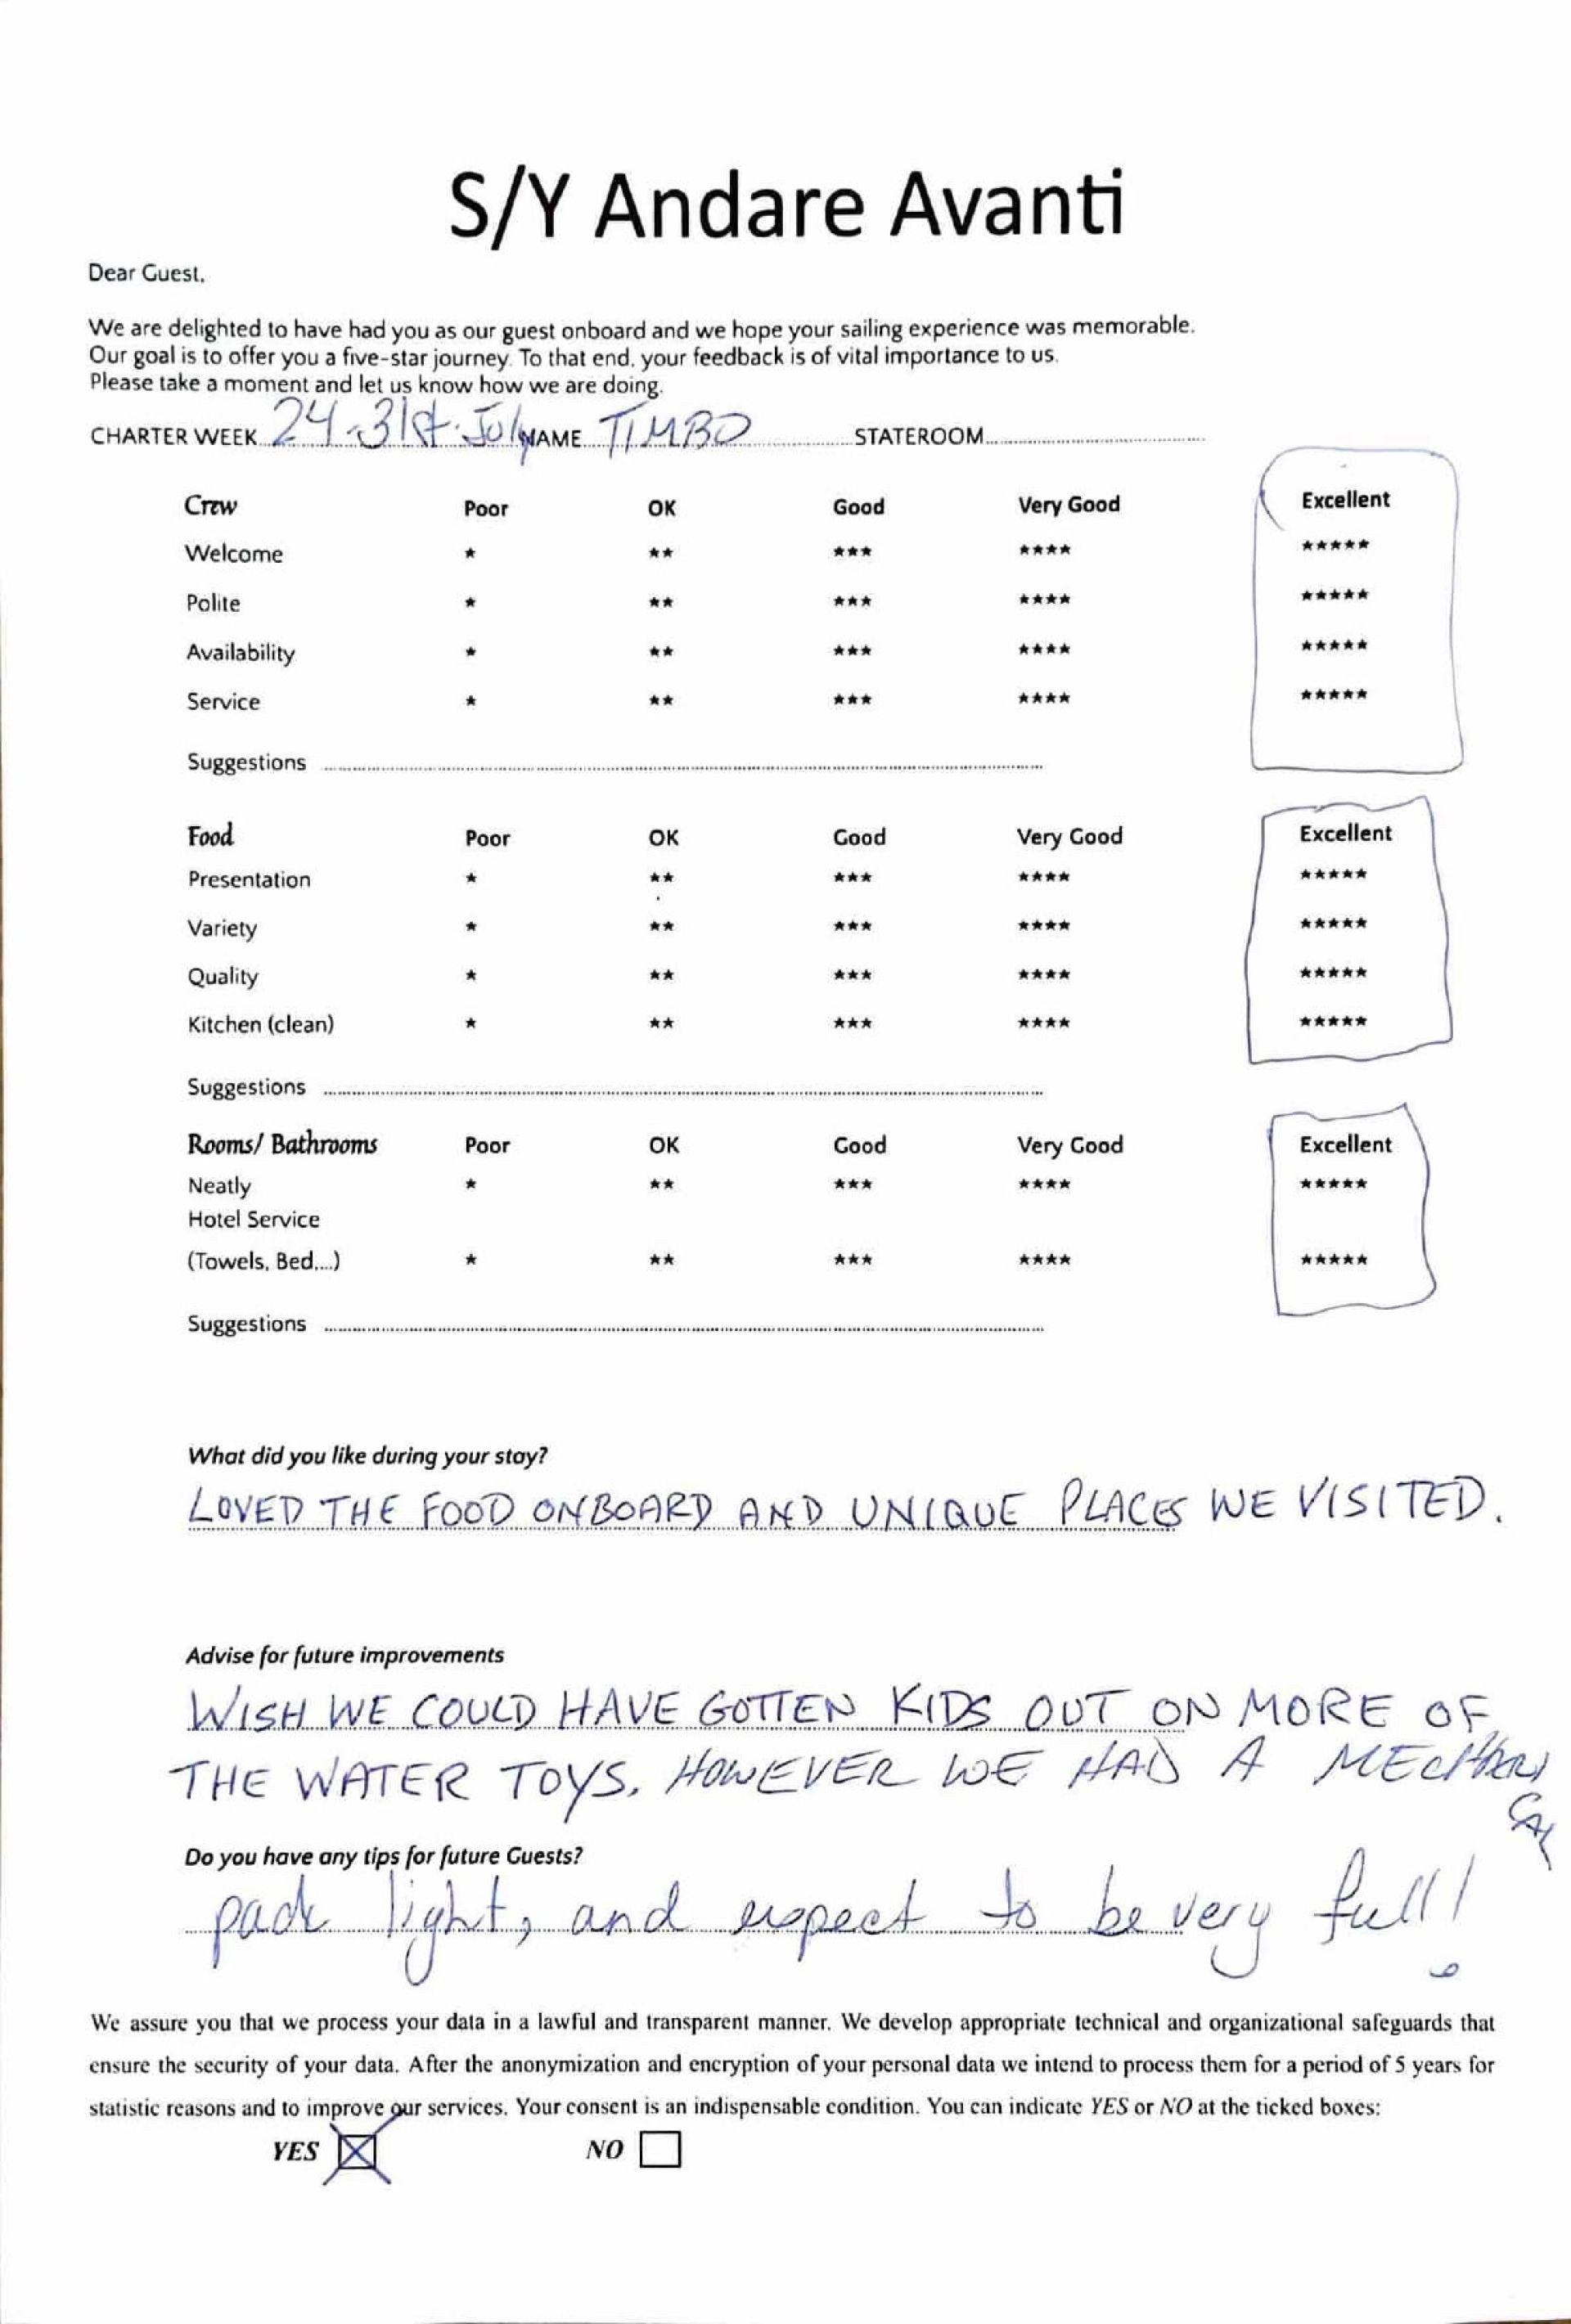 S/Y Andare Avanti
Dear Guest,
We are delighted to have had you as our guest onboard and we hope your sailing experience was memorable.
Our goal is to offer you a five-star journey. To that end, your feedback is of vital importance to us.
Please take a moment and let us know how we are doing.
CHARTER WEEK 24-31st July NAME TIMBO STATEROOM
Crew Poor OK Good Very Good Excellent
Welcome * ** *** **** *****
Polite * ** *** **** *****
Availability * ** *** **** *****
Service * ** *** **** *****
Suggestions
Food Poor OK Good Very Good Excellent
Presentation * ** *** **** *****
Variety * ** *** **** *****
Quality * ** *** **** *****
Kitchen (clean) * ** *** **** *****
Suggestions
Rooms/ Bathrooms Poor OK Good Very Good Excellent
Neatly * ** *** **** *****
Hotel Service
(Towels, Bed,...) * ** *** **** *****
Suggestions
What did you like during your stay?
LOVED THE FOOD ONBOARD AND UNIQUE PLACES WE VISITED.
Advise for future improvements
WISH WE COULD HAVE GOTTEN KIDS OUT ON MORE OF
THE WATER TOYS. HOWEVER WE HAD A MECHANI
CAL
Do you have any tips for future Guests?
pack light, and expect to be very full!
We assure you that we process your data in a lawful and transparent manner. We develop appropriate technical and organizational safeguards that
ensure the security of your data. After the anonymization and encryption of your personal data we intend to process them for a period of 5 years for
statistic reasons and to improve our services. Your consent is an indispensable condition. You can indicate YES or NO at the ticked boxes:
YES NO